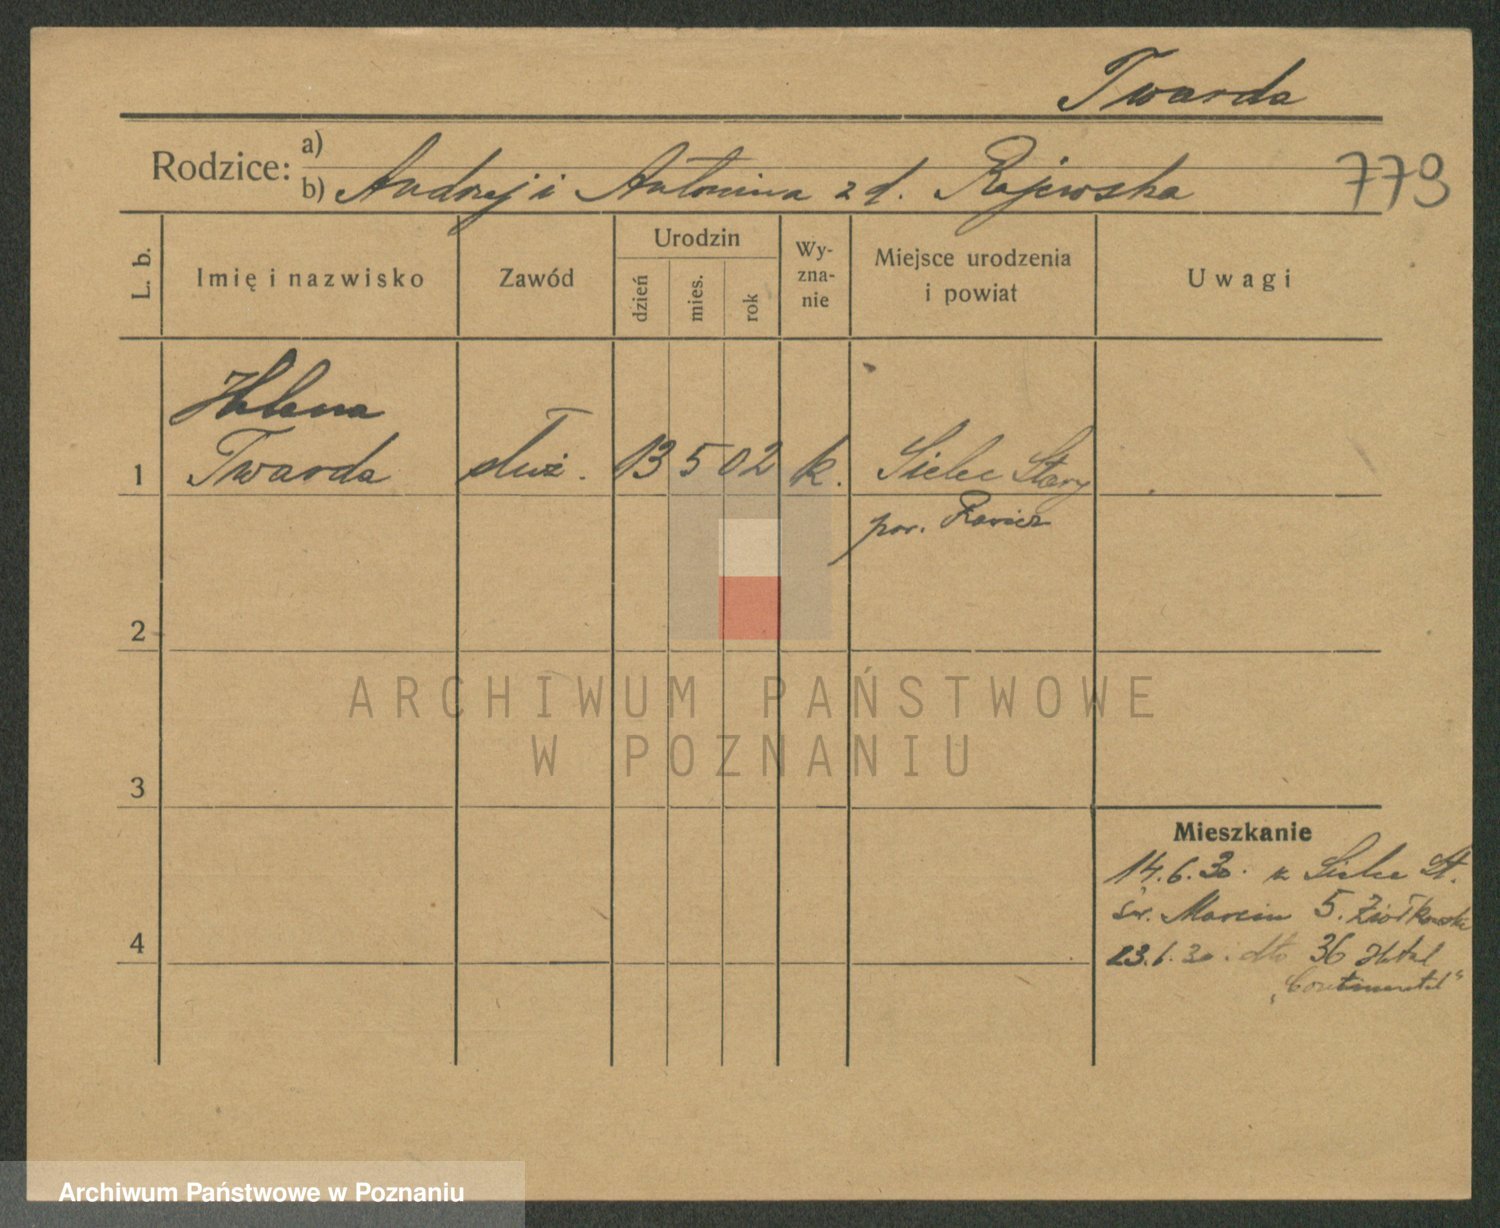 Twarda
Rodzice:
a)
b) Andrzej i Antonina z d. Rajewska
779
L. b.
Imię i nazwisko
Zawód
Urodzin
dzień
mies.
rok
Wy-
zna-
nie
Miejsce urodzenia
i powiat
Uwagi
Helena
1 Twarda służ. 13 5 02 k. Sielec Stary
pow. Rawicz
2
3
4
Mieszkanie
14.6.30. z Sielec St.
św. Marcin 5. Ziółkowska
23.6.30. dto 36 Hotel
„Continental"
ARCHIWUM PAŃSTWOWE
W POZNANIU
Archiwum Państwowe w Poznaniu